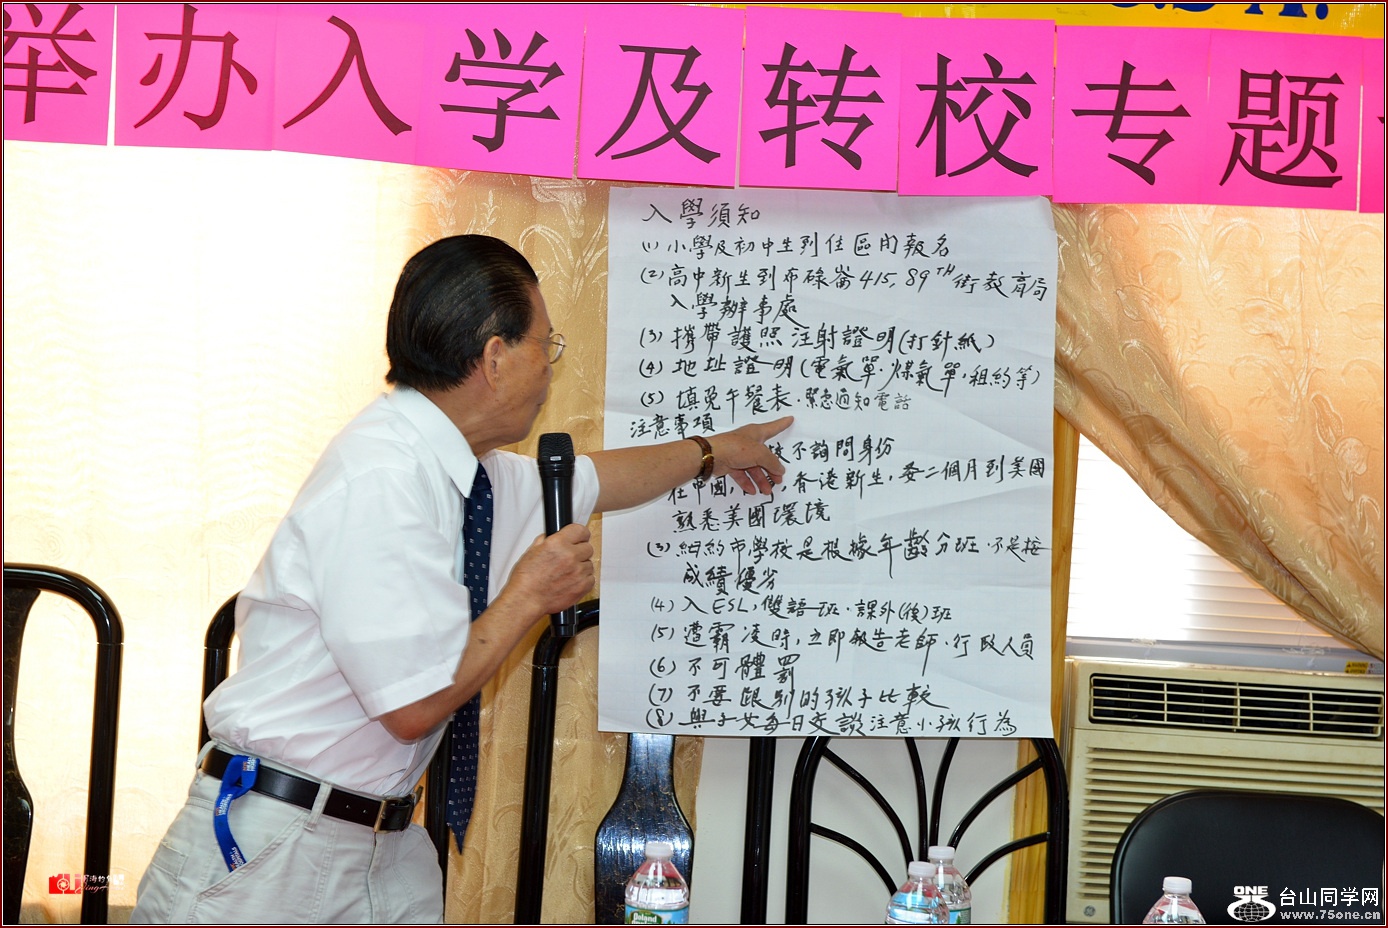 举办入学及转校专题
入學須知
(1) 小學及初中生到住區內報名
(2) 高中新生到布碌崙415, 89TH街教育局
入學辦事處
(3) 攜帶護照 注射證明(打針紙)
(4) 地址證明(電氣單·煤氣單,租約等)
(5) 填免午餐表·緊急通知電話
注意事項
校不詢問身份
在中國, 香港新生,要二個月到美國
熟悉美國環境
(3) 紐約市學校是根據年齡分班·不是按
成績優劣
(4) 入ESL, 雙語班·課外(後)班
(5) 遭霸凌時,立即報告老師·行政人員
(6) 不可體罰
(7) 不要跟別的孩子比較
(8) 與子女每日交談注意小孩行為
ONE
台山同学网
www.75one.cn